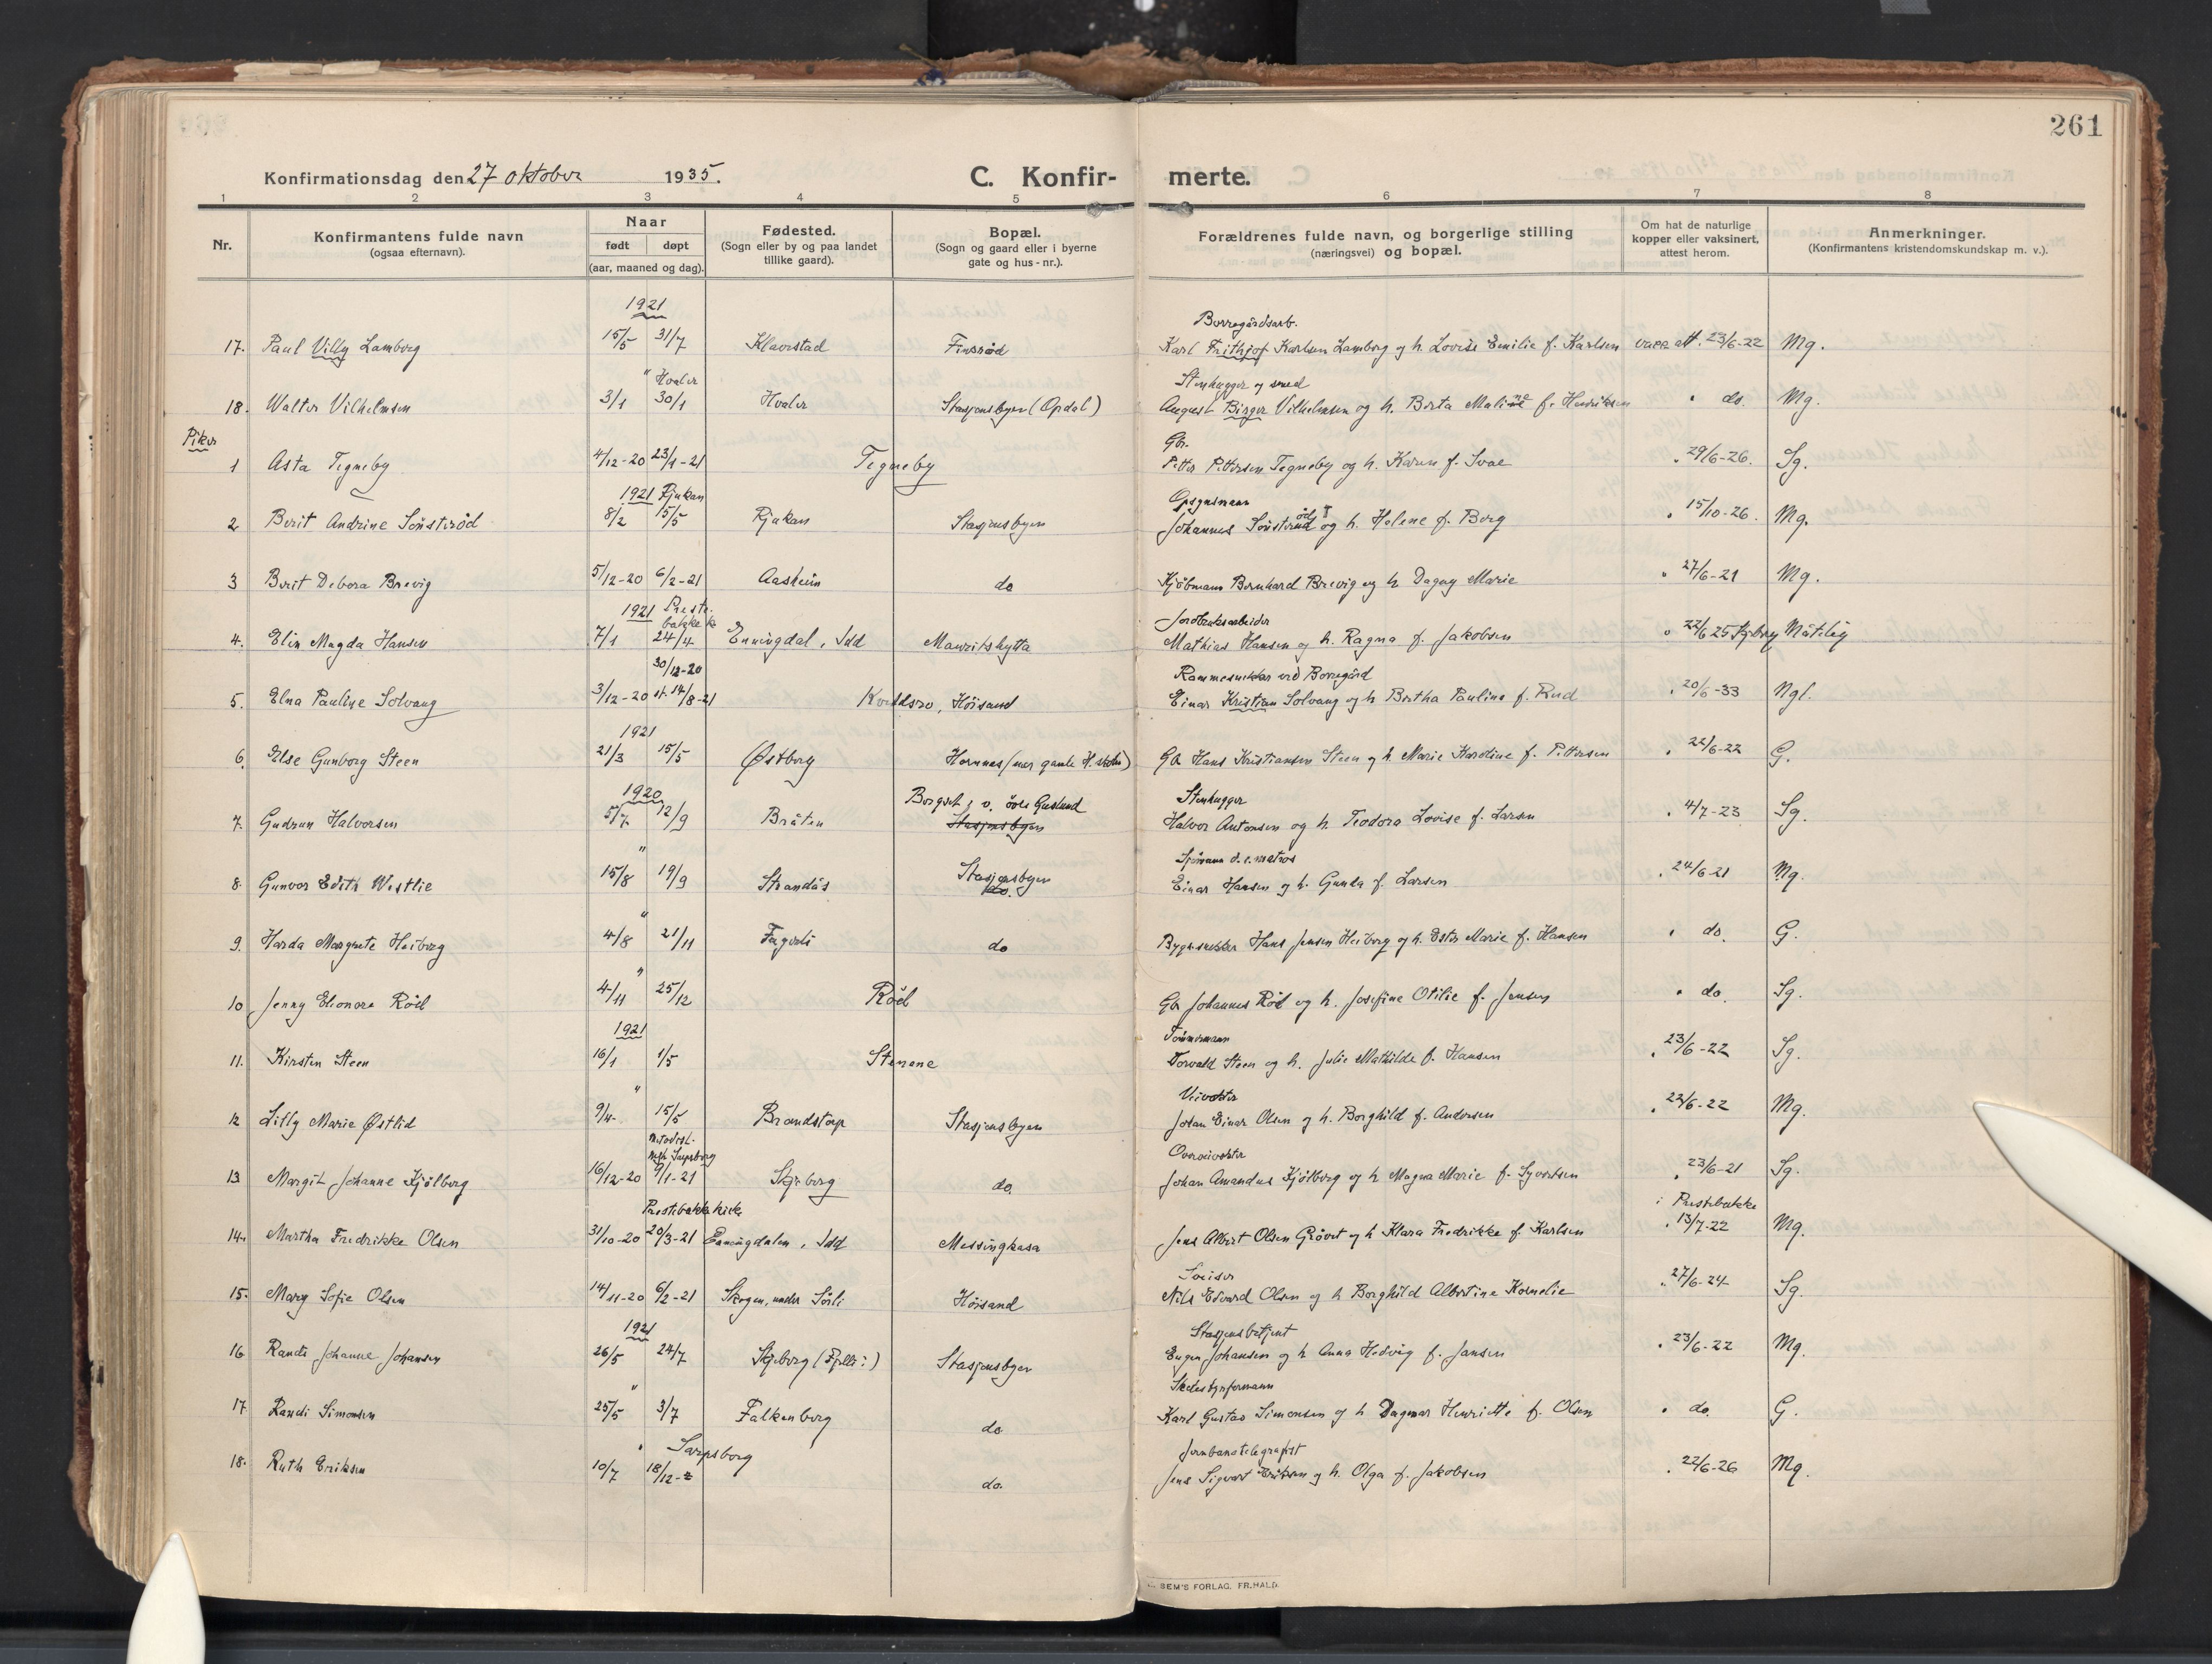 261
Konfirmationsdag den 27 oktober 1935.
C. Konfir- merte.
1 2 3 4 5 6 7 8
Nr.
Konfirmantens fulde navn
(ogsaa efternavn).
Naar
født døpt
(aar, maaned og dag).
Fødested.
(Sogn eller by og paa landet
tillike gaard).
Bopæl.
(Sogn og gaard eller i byerne
gate og hus-nr.).
Forældrenes fulde navn, og borgerlige stilling
(næringsvei) og bopæl.
Om hat de naturlige
kopper eller vaksinert,
attest herom.
Anmerkninger.
(Konfirmantens kristendomskundskap m. v.).
1921
Borregårdsarb.
17. Paul Villy Lamberg 15/5 31/7 Klavestad Finsrød Karl Frithjof Karlsen Lamberg og h. Lovise Emilie f. Karlsen vacc att. 23/6-22 Mg.
" Hvaler
Stenhugger og smed
18. Walter Vilhelmsen 3/1 30/1 Hvaler Stasjonsbyen (Opdal) August Birger Vilhelmsen og h. Berta Maline f. Hendriksen " do. Mg.
Piker
Gbr.
1 Asta Tegneby 4/12-20 23/1-21 Tegneby Petter Pettersen Tegneby og h. Karen f. Svae " 29/6-26. Sg.
1921 Rjukan
Opsynsmann
2 Berit Andrine Sönsteröd 8/2 15/5 Rjukan Stasjonsbyen Johannes Sönsteröd og h. Helene f. Borg " 15/10-26. Mg.
3 Berit Debora Brevig 5/12-20 6/2-21 Aasheim do Kjöbmann Bernhard Brevig og h Dagny Marie " 27/6-21 Mg.
1921 Preste-
bakke k
Jordbruksarbeider
4. Elin Magda Hansen 7/1 24/4 Enningdal, Idd Mauritshytta Mathias Hansen og h. Ragna f. Jakobsen " 22/6 25 Måtelig
30/12-20
Rammesnekker ved Borregård
5. Elna Pauline Solvang 3/12-20 st. 14/8-21 Kveldsro, Höisand Einar Kristian Solvang og h Bertha Pauline f. Rud " 20/6-33 Ngl.
1921
6. Else Gunborg Steen 21/3 15/5 Østberg Hornnes (nær gamle H. skole) Gb Hans Kristiansen Steen og h. Marie Karoline f. Pettersen " 22/6-22 G.
1920
Borgset; v. övre Gusland
Stenhugger
7. Gudrun Halvorsen 5/7 12/9 Bråten Stasjonsbyen Halvor Antonsen og h. Teodora Lovise f. Larsen " 4/7-23 Sg.
"
Sjömann d.e. matros
8. Gunvor Edith Westlie 15/8 19/9 Strandås Stasjonsbyen do. Einar Hansen og h. Gunda f. Larsen " 24/6-21 Mg.
"
9. Harda Margrete Heiberg 4/8 21/11 Fagerli do Bygn.snekker Hans Jensen Heiberg og h. Ester Marie f. Hansen " do. G.
"
10 Jenny Elionora Röd 4/11 25/12 Röd Gb Johannes Röd og h. Josefine Otilie f. Jensen " do. Sg.
1921
Tömmermann
11. Kirsten Steen 16/1 1/5 Stenene Torvald Steen og h. Julie Mathilde f. Hansen " 23/6-22 Sg.
"
Veivokter
12 Lilly Marie Østlid 9/4 15/5 Brandstorp Stasjonsbyen Johan Einar Olsen og h. Borghild f. Andersen " 22/6-22 Mg.
Metodist-
mgh Sarpsborg
Overveivokter
13 Margit Johanne Kjölberg 16/12-20 9/1-21 Skjeberg do. Johan Amandus Kjölberg og h Magna Marie f. Syvertsen " 23/6-21 Sg.
Prestebakke kirke
i Prestebakke
14. Martha Fredrikke Olsen 31/10-20 20/3-21 Enningdalen, Idd Messingkasa Jens Albert Olsen Grövet og h Klara Fredrikke f. Karlsen " 13/7-22 Mg.
Sveiser
15. Mary Sofie Olsen 14/11-20 6/2-21 Skogen, under Sörli Höisand Nils Edvard Olsen og h Borghild Albertine Kornelie " 27/6-24 Sg.
1921
Stasjonsbetjent
16 Randi Johanne Johansen 26/5 24/7 Skjeberg Stasjonsbyen Eugen Johansen og h Anna Hedvig f. Jansen " 23/6-22 Mg.
"
17 Randi Simonsen 25/5 3/7 Falkenberg do Karl Gustav Simonsen og h Dagmar Henriette f. Olsen " do. G.
" Sarpsborg
Jernbanetelegrafist
18. Ruth Eriksen 10/7 18/12 do. Jens Sigvart Eriksen og h. Olga f. Jakobsen " 22/6-26 Mg.
SEM'S FORLAG. FR.HALD.